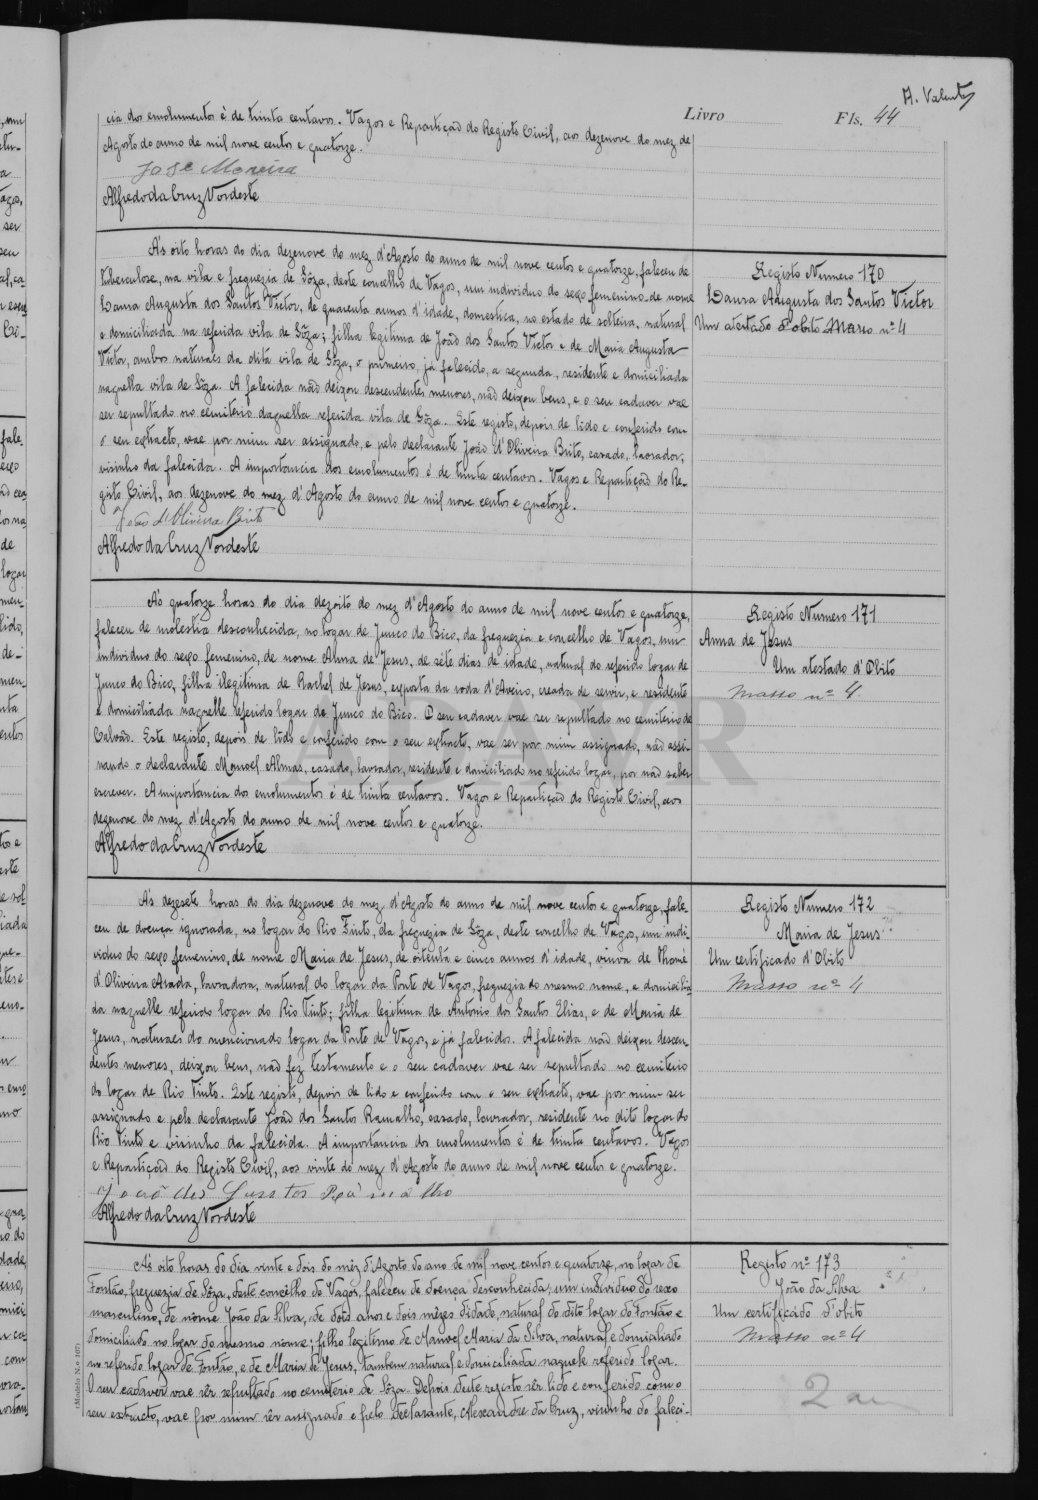 A. Valente
Livro
Fls. 44
cia dos emolumentos é de trinta centavos. Vagos e Repartiçaõ do Registo Civil, aos dezenove do mez de
Agosto do anno de mil nove centos e quatorze.
José Moreira
Alfredo da Cruz Nordeste
Ás oito horas do dia dezenove do mez d'Agosto do anno de mil nove centos e quatorze, faleceu de
tuberculose, na vila e freguezia de Sôza, deste concelho de Vagos, um individuo do sexo femenino de nome
Laura Augusta dos Santos Victor, de quarenta annos d'idade, domestica, no estado de solteira, natural
e domiciliada na referida vila de Sôza; filha legitima de Joaõ dos Santos Victor e de Maria Augusta
Victor, ambos naturaes da dita vila de Sôza, o primeiro, já falecido, a segunda, residente e domiciliada
naquella vila de Sôza. A falecida naõ deixou descendentes menores, naõ deixou bens, e o seu cadaver vae
ser sepultado no cemiterio daquella referida vila de Sôza. Este registo, depois de lido e conferido com
o seu extracto, vae por mim ser assignado, e pelo declarante Joaõ d'Oliveira Brito, casado, lavrador,
visinho da falecida. A importancia dos emolumentos é de trinta centavos. Vagos e Repartiçaõ do Re-
gisto Civil, aos dezenove do mez d'Agosto do anno de mil nove centos e quatorze.
João d'Oliveira Brito
Alfredo da Cruz Nordeste
Registo Numero 170
Laura Augusta dos Santos Victor
Um atestado d'obito Masso nº 4
Ás quatorze horas do dia dezoito do mez d'Agosto do anno de mil nove centos e quatorze,
faleceu de molestia desconhecida, no logar de Junco do Bico, da freguezia e concelho de Vagos, um
individuo do sexo femenino, de nome Anna de Jesus, de séte dias de idade, natural do referido logar de
Junco do Bico, filha ilegitima de Rachel de Jesus, exposta da roda d'Aveiro, creada de servir, e residente
e domiciliada naquelle referido logar do Junco do Bico. O seu cadaver vae ser sepultado no cemiterio de
Calvaõ. Este registo, depois de lido e conferido com o seu extracto, vae ser por mim assignado, naõ assi-
nando o declarante Manoel Almas, casado, lavrador, residente e domiciliado no referido logar, por naõ saber
escrever. A importancia dos emolumentos é de trinta centavos. Vagos e Repartiçaõ do Registo Civil, aos
dezenove do mez d'Agosto do anno de mil nove centos e quatorze.
Alfredo da Cruz Nordeste
Registo Numero 171
Anna de Jesus
Um atestado d'Obito
Masso nº 4
Ás dezesete horas do dia dezenove do mez d'Agosto do anno de mil nove centos e quatorze, fale-
ceu de doença ignorada, no logar do Rio Tinto, da freguezia de Sôza, deste concelho de Vagos, um indi-
viduo do sexo femenino, de nome Maria de Jesus, de oitenta e cinco annos d'idade, viuva de Thomé
d'Oliveira Arada, lavradora, natural do logar da Ponte de Vagos, freguezia do mesmo nome, e domicilia-
da naquelle referido logar do Rio Tinto; filha legitima de Antonio dos Santos Elias, e de Maria de
Jesus, naturaes do mencionado logar da Ponte de Vagos, e já falecidos. A falecida naõ deixou descen-
dentes menores, deixou bens, naõ fez testamento e o seu cadaver vae ser sepultado no cemiterio
do logar de Rio Tinto. Este registo, depois de lido e conferido com o seu extracto, vae por mim ser
assignado e pelo declarante Joaõ dos Santos Ramalho, casado, lavrador, residente no dito logar do
Rio Tinto e visinho da falecida. A importancia dos emolumentos é de trinta centavos. Vagos
e Repartiçaõ do Registo Civil, aos vinte do mez d'Agosto do anno de mil nove centos e quatorze.
João dos Santos Ramalho
Alfredo da Cruz Nordeste
Registo Numero 172
Maria de Jesus
Um certificado d'Obito
Masso nº 4
Ás oito horas do dia vinte e dois do mêz d'Agosto do ano de mil nove centos e quatorze, no logar de
Fontão, freguezia de Sôza, deste concêlho de Vagos, faleceu de doença desconhecida, um individuo do sexo
masculino, de nome João da Silva, de dois anos e dois mêzes d'idade, natural do dito logar do Fontão e
domiciliado no logar do mesmo nome; filho legitimo de Manoel Maria da Silva, natural e domiciliado
no referido logar de Fontão, e de Maria de Jesus, tambem natural e domiciliada naquele referido logar.
O seu cadaver vae sêr sepultado no cemiterio de Sôza. Depois deste registo sêr lido e conferido com o
seu extracto, vae por mim sêr assignado e pelo declarante, Alexandre da Cruz, visinho do faleci-
Registo nº 173
João da Silva
Um certificado d'obito
Masso nº 4
2 an
(Modelo N.º 107)
ADAVR